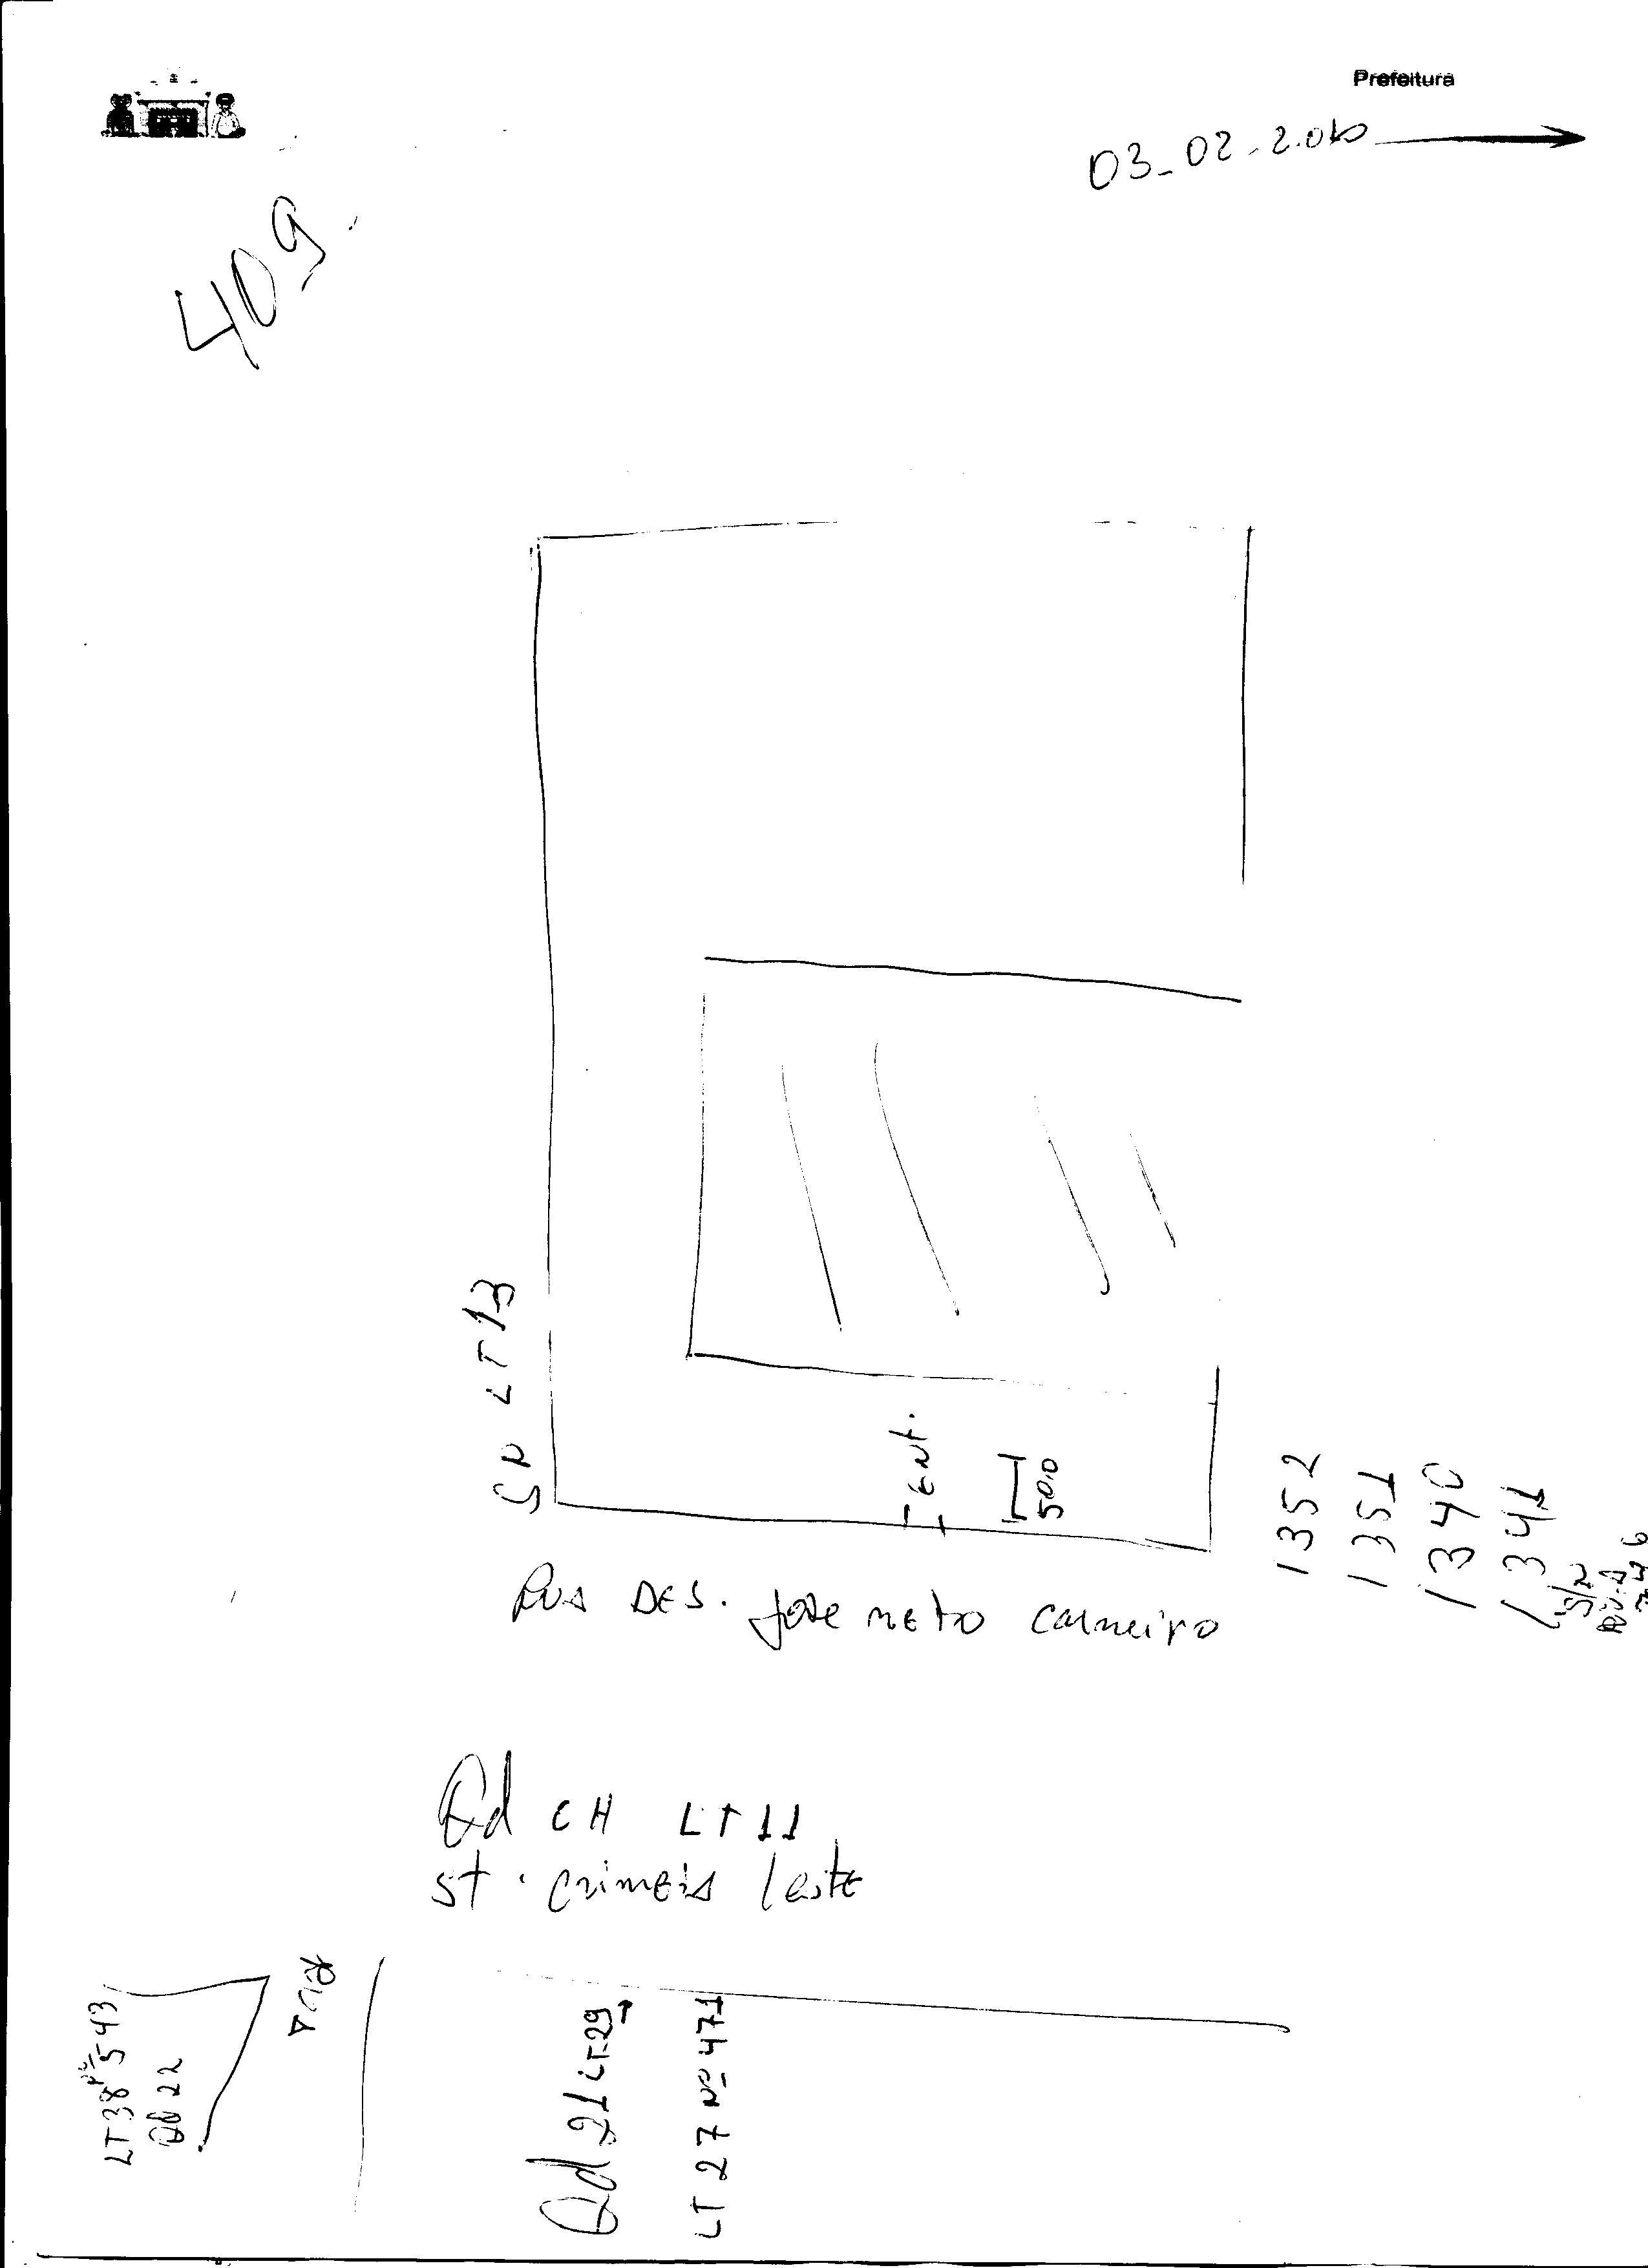 Prefeitura
03-02-2.010
409.
LT 13
ENT.
500
1352
1351
1340
1341
S/N
RUA DES. José neto carneiro
Qd CH LT 11
ST. crimeia leste
RUA
LT 38 nº 543
Qd 22
Qd 21 LT-29
LT 27 Nº 471